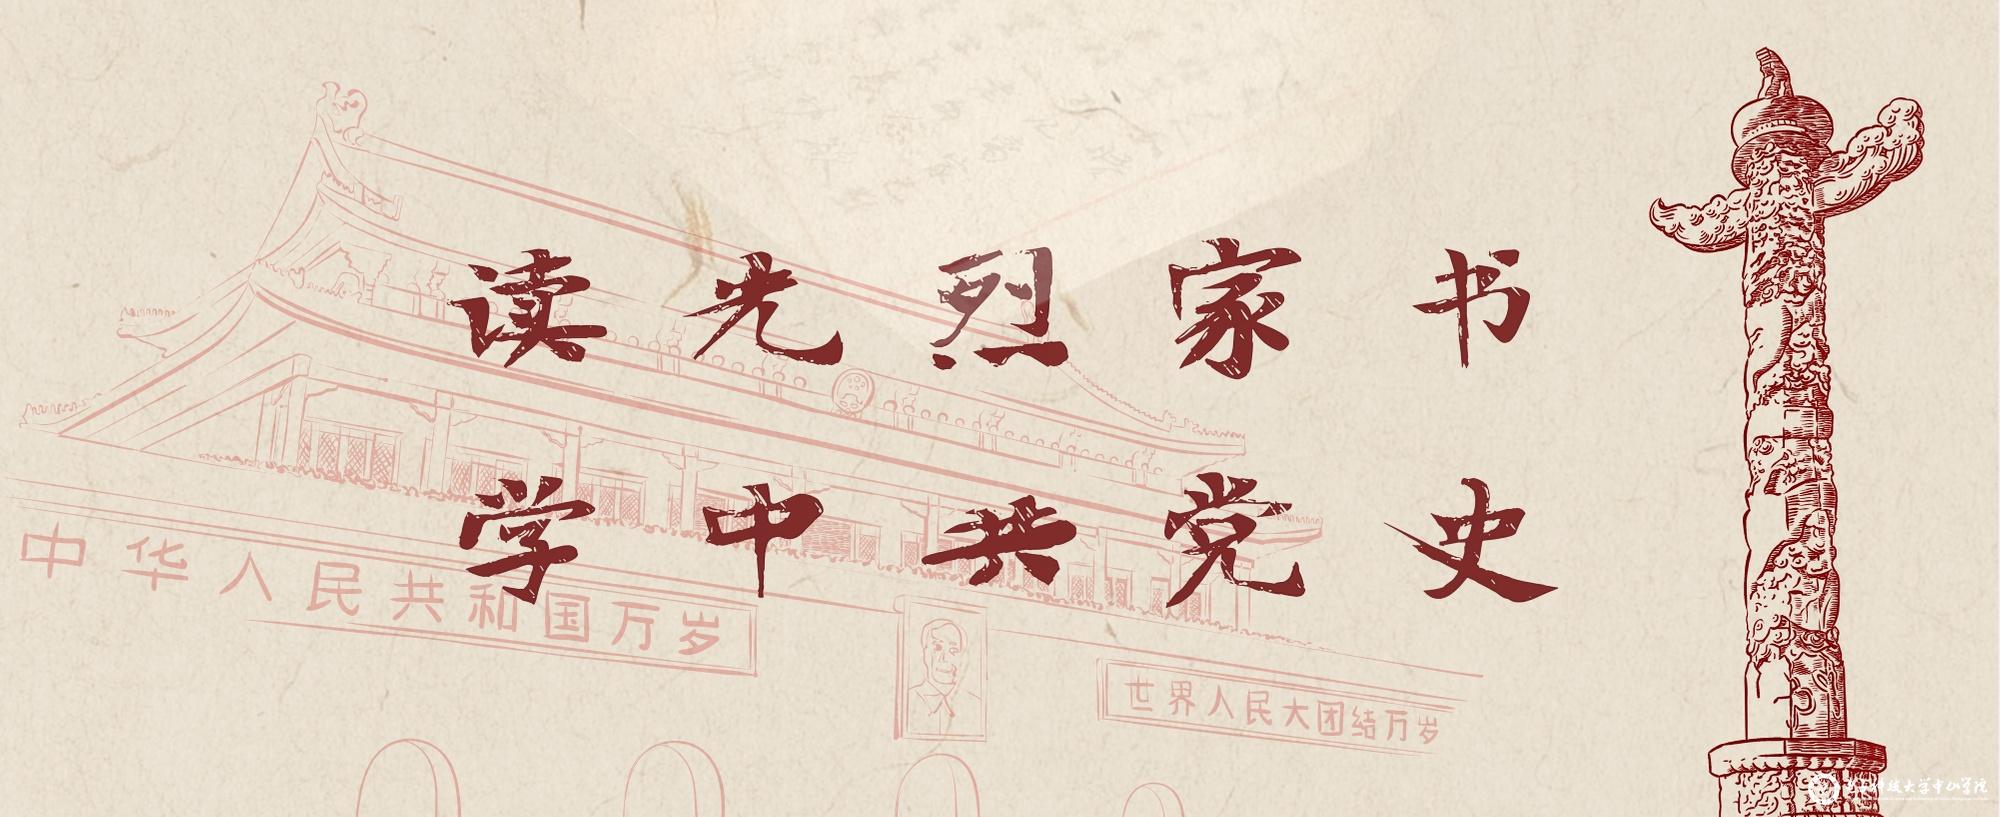 读光烈家书
学中共党史
中华人民共和国万岁
世界人民大团结万岁
电子科技大学中山学院